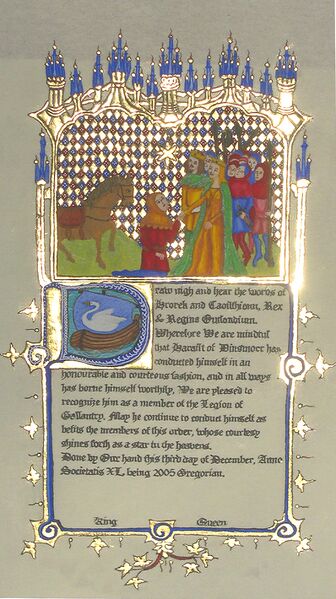 Draw nigh and hear the words of
Brorek and Caoilfhionn, Rex
& Regina Outlandium.
Wherefore We are mindful
that of Dinsmoer has
conducted himself in an
honourable and courteous fashion, and in all ways
has borne himself worthily, We are pleased to
recognize him as a member of the Legion of
Gallantry. May he continue to conduct himself as
befits the members of this order, whose courtesy
shines forth as a star in the heavens.
Done by Our hand this third day of December, Anno
Societatis XL, being 2005 Gregorian.
King Queen